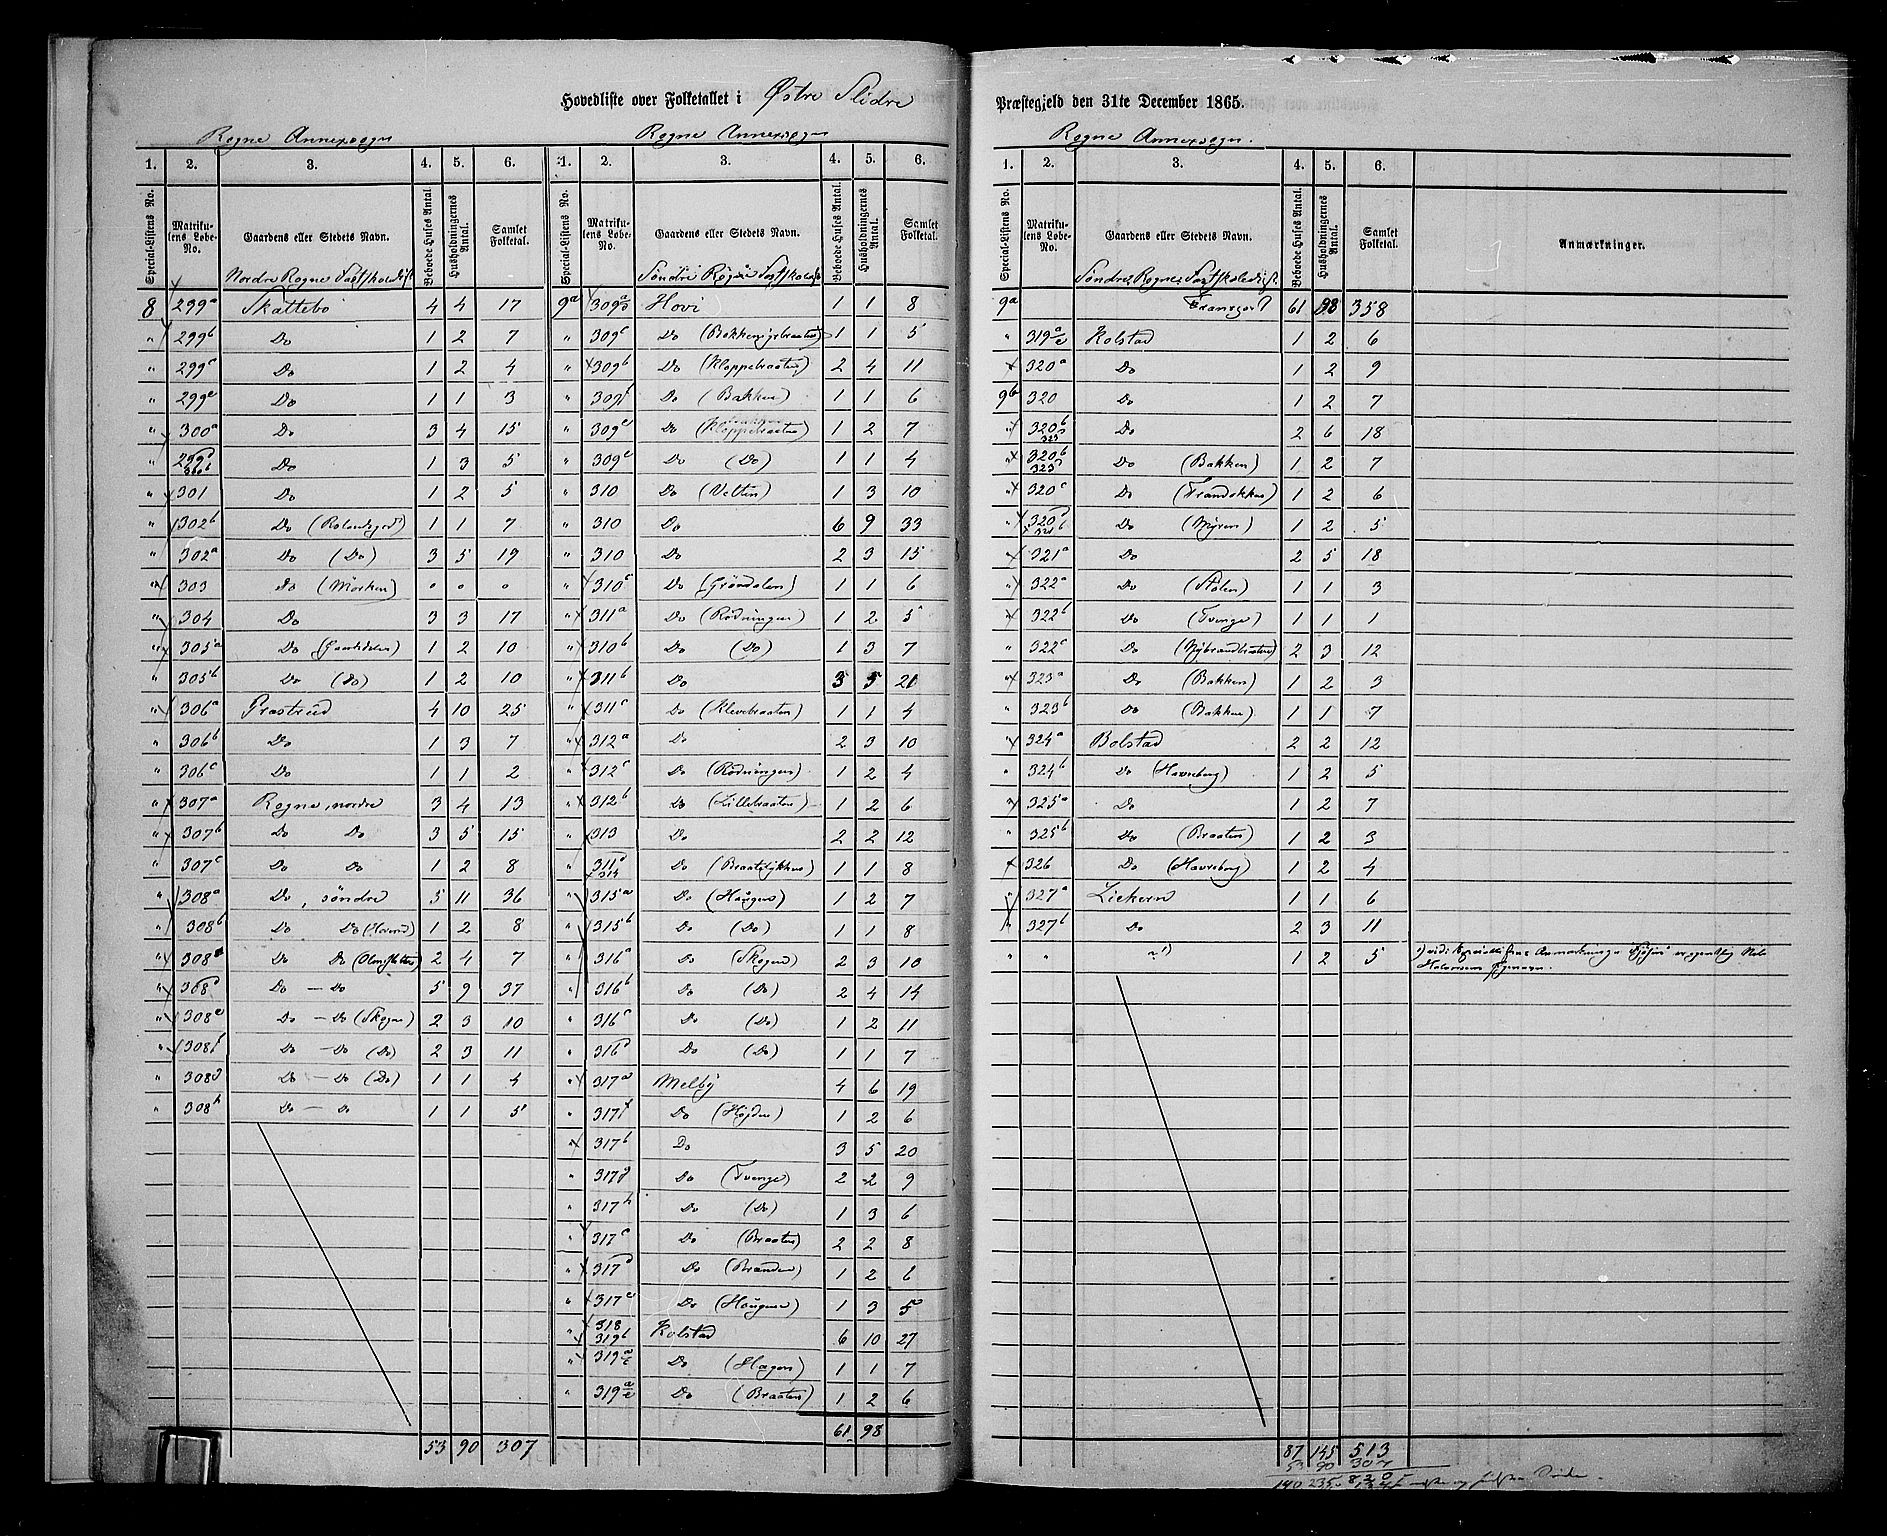 Hovedliste over Folketallet i Østre Slidre
Præstegjeld den 31te December 1865.
Rogne Annexsogn
1. 2. 3. 4. 5. 6.
Special-Listens No. Matrikulens Løbe-No. Gaardens eller Stedets Navn. Beboede Huses Antal. Husholdningernes Antal. Samlet Folketal.
Nordre Rogne Fastskoledist
8 299a Skattebo 4 4 17
" 299b Do 1 2 7
" 299c Do 1 2 4
" 299e Do 1 1 3
" 300a Do 3 4 15
" 299d 300b Do 1 3 5
" 301 Do 1 2 5
" 302b Do (Rolandsgrd) 1 1 7
" 302a Do (Do) 3 5 19
" 303 Do (Mørken) " " "
" 304 Do 3 3 17
" 305a Do 1 2 10
" 305b Do (Do) 1 2 10
" 306a Prastrud 4 10 25
" 306b Do 1 3 7
" 306c Do 1 1 2
" 307a Rogne, nordre 3 4 13
" 307b Do Do 3 5 15
" 307c Do Do 1 2 8
" 308a Do, søndre 5 11 36
" 308b Do Do 1 2 8
" 308 Do Do 2 4 7
" 308d Do — Do 5 9 37
" 308e Do — Do (Skogen) 2 3 10
" 308f Do — Do (Do) 2 3 11
" 308g Do — Do (Do) 1 1 4
" 308h Do — Do 1 1 5
53 90 307
Rogne Annexsogn
1. 2. 3. 4. 5. 6.
Special-Listens No. Matrikulens Løbe-No. Gaardens eller Stedets Navn. Beboede Huses Antal. Husholdningernes Antal. Samlet Folketal.
Søndre Rogne Fastskoledist
9a 309a Hovi 1 1 8
" 309c Do 1 1 5
" 309b Do (Kloppebraaten) 2 4 11
" 309f Do (Bakken) 1 1 6
" 309d Do (Kloppebraaten) 1 2 7
" 309e Do (Do) 1 1 4
" 310 Do (Velten) 1 3 10
" 310 Do 6 9 33
" 310 Do 2 3 15
" 310c Do (Grøndalen) 1 1 6
" 311a Do (Rødningen) 1 2 5
" 310b Do (Do) 1 3 7
" 311b Do 3 5 21
" 311c Do (Klevebraaten) 1 1 4
" 312a Do 2 3 10
" 312c Do (Rødningen) 1 2 4
" 312b Do (Lillebraaten) 1 2 6
" 313 Do 2 2 12
" 311d 314 Do (Braatelykken) 1 1 8
" 315a Do (Haugen) 1 2 7
" 315b Do (Do) 1 1 8
" 316a Do (Skogen) 2 3 10
" 316b Do (Do) 2 4 14
" 316c Do (Do) 1 2 11
" 316d Do (Do) 1 1 7
" 317a Melby 4 6 19
" 317f Do (Højden) 1 2 6
" 317b Do 3 5 20
" 317g Do (Tvenge) 2 2 9
" 317h Do (Do) 1 3 6
" 317c Do (Braaten) 2 2 8
" 317d Do (Branden) 1 2 6
" 317e Do (Haugen) 1 3 5
" 318 319b Kolstad 6 10 27
" 319a/c Do (Hagen) 1 1 7
" 319a/c Do (Braaten) 1 2 6
61 98
Rogne Annexsogn.
1. 2. 3. 4. 5. 6.
Special-Listens No. Matrikulens Løbe-No. Gaardens eller Stedets Navn. Beboede Huses Antal. Husholdningernes Antal. Samlet Folketal. Anmærkninger.
Søndre Rogne Fastskoledist.
9a Transport 61 98 358
" 319a/c Kolstad 1 2 6
" 320a Do 1 2 9
9b 320 Do 1 2 7
" 320b 323 Do 2 6 18
" 320b 323 Do (Bakken) 1 2 7
" 320c Do 1 2 6
" 320d 321b Do (Myren) 1 2 5
" 321a Do 2 5 18
" 322a Do (Stølen) 1 1 3
" 322b Do (Tvenge) 1 1 1
" 322c Do (Nybrandbraaten) 2 3 12
" 323a Do (Bakken) 1 2 3
" 323b Do (Bakken) 1 1 7
" 324a Bolstad 2 2 12
" 324b Do (Havreberg) 1 2 5
" 325a Do 1 2 7
" 325b Do (Braaten) 1 2 3
" 326 Do (Havreberg) 1 2 4
" 327a Liekern 1 1 6
" 327b Do 2 3 11
" " "1) 1 2 5 1) vide Speciallistens Anmærkninger
87 145 513
53 90 307
140 235 820